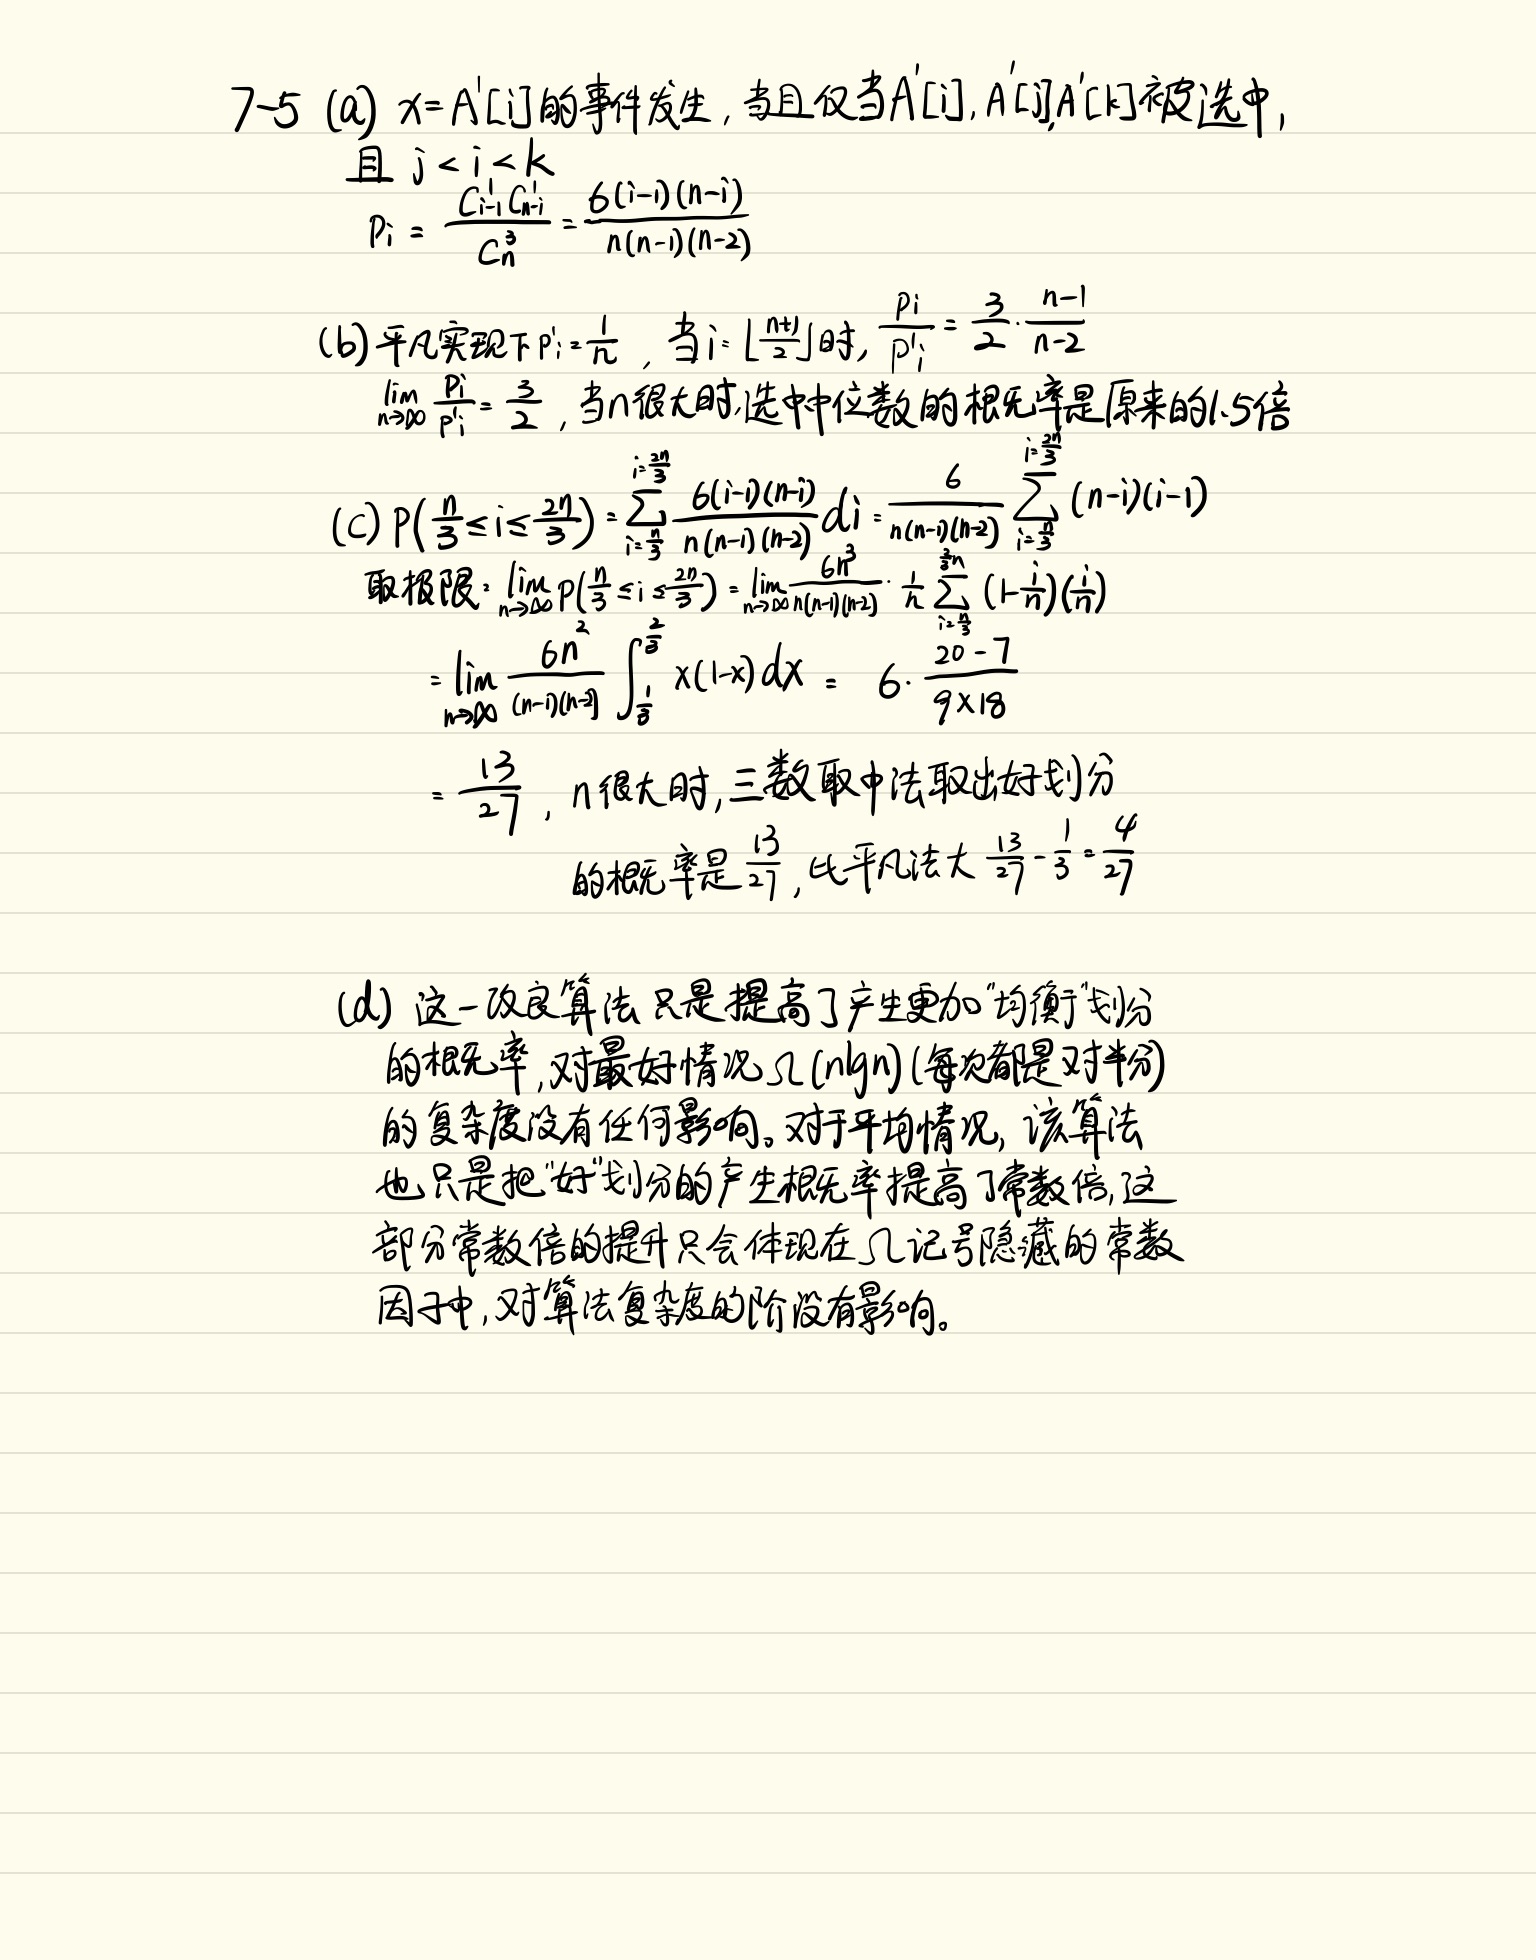 7-5 (a) x=A'[i]的事件发生,当且仅当A'[i],A'[j],A'[k]被选中,
且 j<i<k
P_i = \frac{C_{i-1}^1 C_{n-i}^1}{C_n^3} = \frac{6(i-1)(n-i)}{n(n-1)(n-2)}
(b)平凡实现下P'_i=\frac{1}{n},当i=⌊\frac{n+1}{2}⌋时,\frac{P_i}{P'_i}=\frac{3}{2}·\frac{n-1}{n-2}
\lim_{n→∞}\frac{P_i}{P'_i}=\frac{3}{2},当n很大时,选中中位数的概率是原来的1.5倍
(c) P(\frac{n}{3}≤i≤\frac{2n}{3})=\sum_{i=\frac{n}{3}}^{i=\frac{2n}{3}}\frac{6(i-1)(n-i)}{n(n-1)(n-2)}di=\frac{6}{n(n-1)(n-2)}\sum_{i=\frac{n}{3}}^{i=\frac{2n}{3}}(n-i)(i-1)
取极限:\lim_{n→∞}P(\frac{n}{3}≤i≤\frac{2n}{3})=\lim_{n→∞}\frac{6n^3}{n(n-1)(n-2)}·\frac{1}{n}\sum_{i=\frac{n}{3}}^{\frac{2}{3}n}(1-\frac{i}{n})(\frac{i}{n})
=\lim_{n→∞}\frac{6n^2}{(n-1)(n-2)}\int_{\frac{1}{3}}^{\frac{2}{3}}x(1-x)dx = 6·\frac{20-7}{9×18}
=\frac{13}{27},n很大时,三数取中法取出好划分
的概率是\frac{13}{27},比平凡法大\frac{13}{27}-\frac{1}{3}=\frac{4}{27}
(d) 这一改良算法只是提高了产生更加"均衡"划分
的概率,对最好情况Ω(nlgn)(每次都是对半分)
的复杂度没有任何影响。对于平均情况,该算法
也只是把"好"划分的产生概率提高了常数倍,这
部分常数倍的提升只会体现在Ω记号隐藏的常数
因子中,对算法复杂度的阶没有影响。